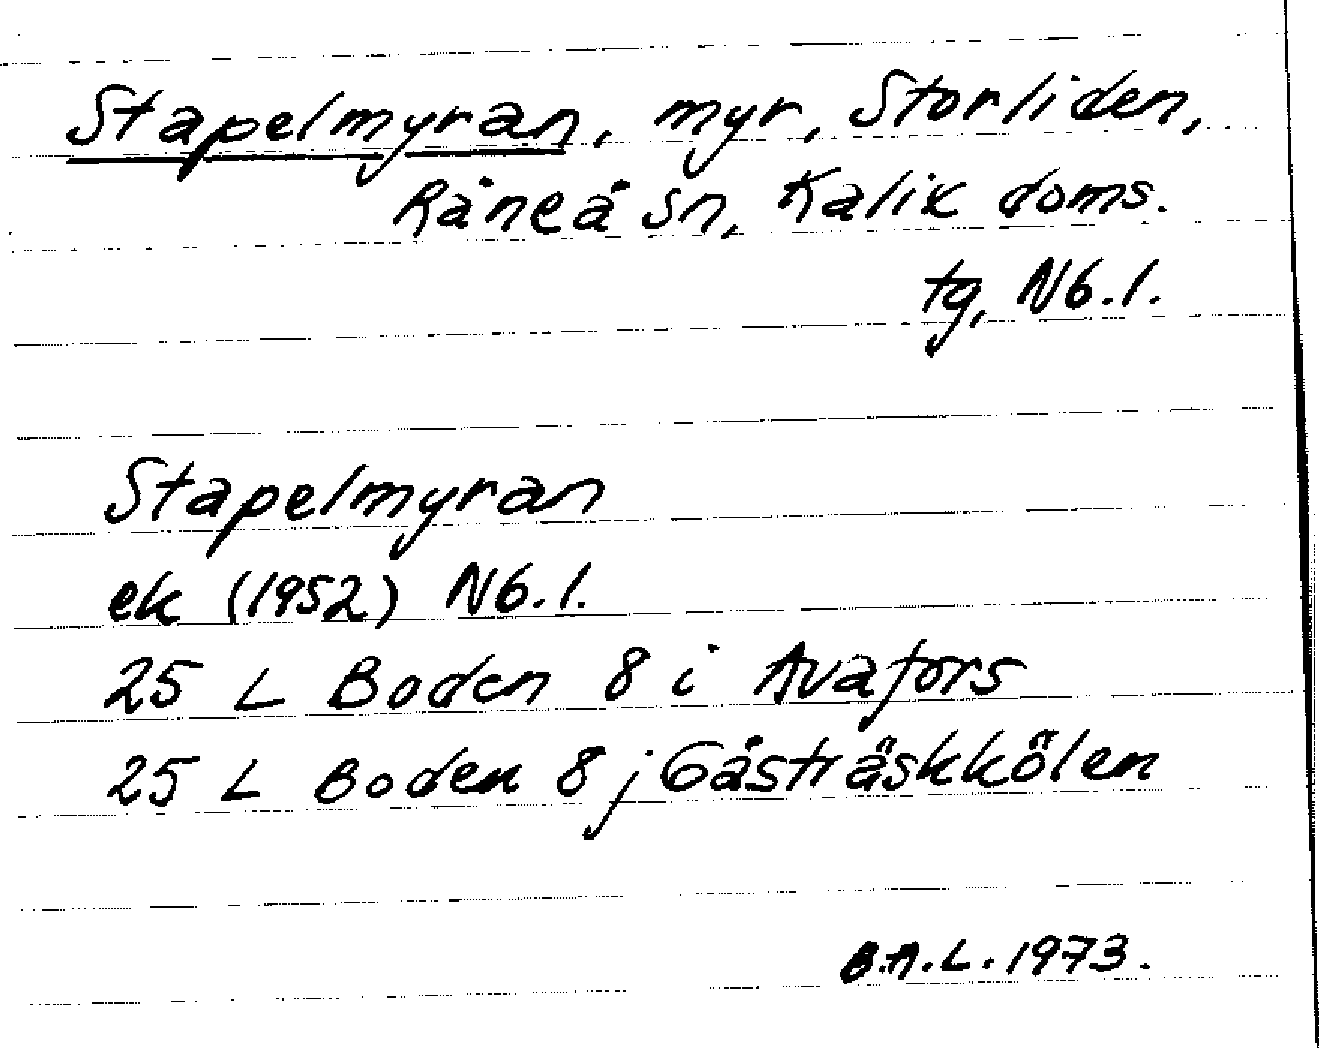 Stapelmyran, myr, Storliden,
Råneå sn, Kalix doms.
tg, Nb.l.
Stapelmyran
ek (1952) Nb.l.
25 L Boden 8 i Avafors
25 L Boden 8 j Gåsträskkölen
B.A.L. 1973.